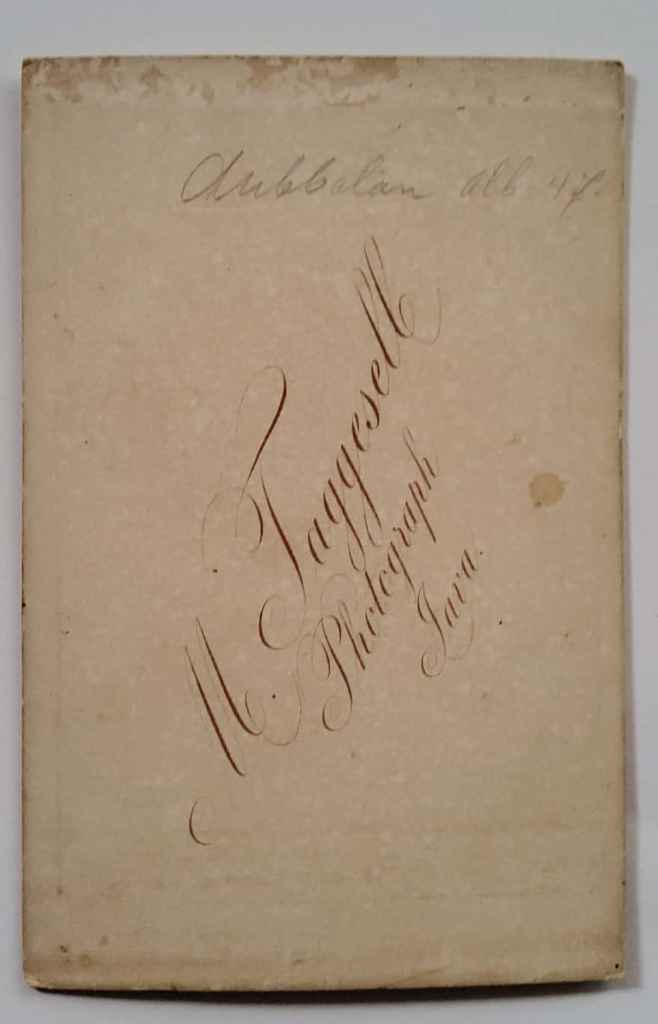 dubbelan alb 47.
M. Taggesell
Photograph
Java.